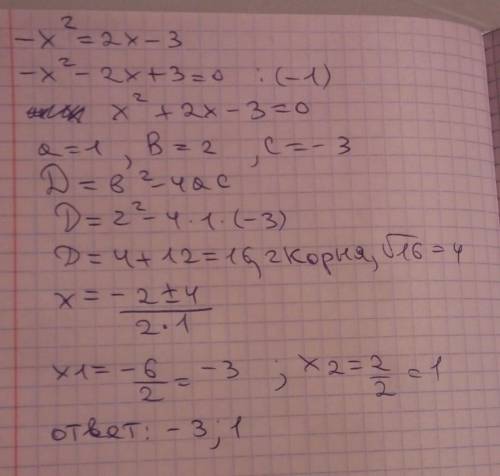 -x² = 2x - 3
-x² - 2x + 3 = 0 : (-1)
x² + 2x - 3 = 0
a = 1, B = 2, c = -3
D = B² - 4ac
D = 2² - 4 · 1 · (-3)
D = 4 + 12 = 16, 2 корня, √16 = 4
x = (-2 ± 4) / (2 · 1)
x1 = -6/2 = -3 ; x2 = 2/2 = 1
ответ: -3; 1